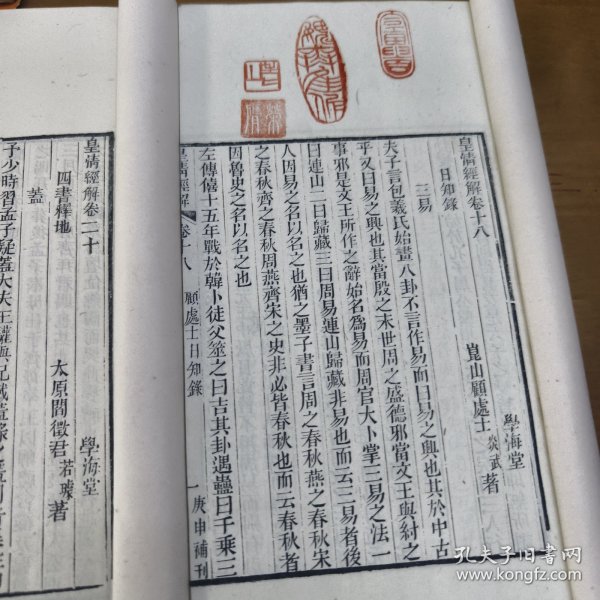 皇清經解卷十八
學海堂
日知錄
崑山顧處士炎武著
三易
夫子言包羲氏始畫八卦不言作易而曰易之興也其於中古
乎又曰易之興也其當殷之末世周之盛德邪當文王與紂之
事邪是文王所作之辭始名為易而周官大卜掌三易之法一
曰連山二曰歸藏三曰周易連山歸藏非易也而云三易者後
人因易之名以名之也猶之墨子書言周之春秋燕之春秋宋
之春秋齊之春秋周燕齊宋之史非必皆春秋也而云春秋者
因魯史之名以名之也
左傳僖十五年戰於韓卜徒父筮之曰吉其卦遇蠱曰千乘三
皇清經解
卷十八
顧處士日知錄
一
庚申補刊
皇清經解卷二十
學海堂
四書釋地
太原閻徵君若璩著
蓋
予少時習孟子疑蓋大夫王驩
孔夫子旧书网
www.kongfz.com